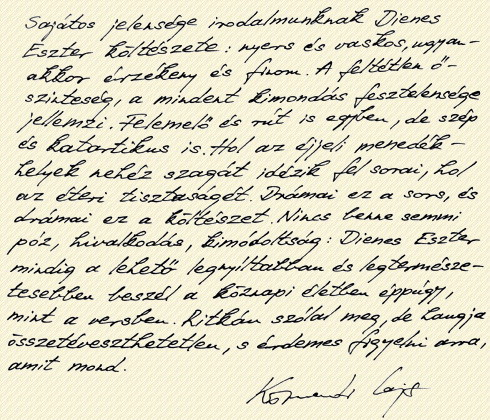 Sajátos jelensége irodalmunknak Dienes
Eszter költészete: nyers és vaskos, ugyan-
akkor érzékeny és finom. A feltétlen ő-
szinteség, a mindent kimondás fesztelensége
jellemzi. Felemelő és rút is egyben, de szép
és katartikus is. Hol az éjjeli menedék-
helyek nehéz szagát idézik fel sorai, hol
az éteri tisztaságét. Drámai ez a sors, és
drámai ez a költészet. Nincs benne semmi
póz, hivalkodás, kimódoltság: Dienes Eszter
mindig a lehető legnyíltabban és legtermésze-
tesebben beszél a köznapi életben éppúgy,
mint a versben. Ritkán szólal meg, de hangja
összetéveszthetetlen, s érdemes figyelni arra,
amit mond.
Lajos